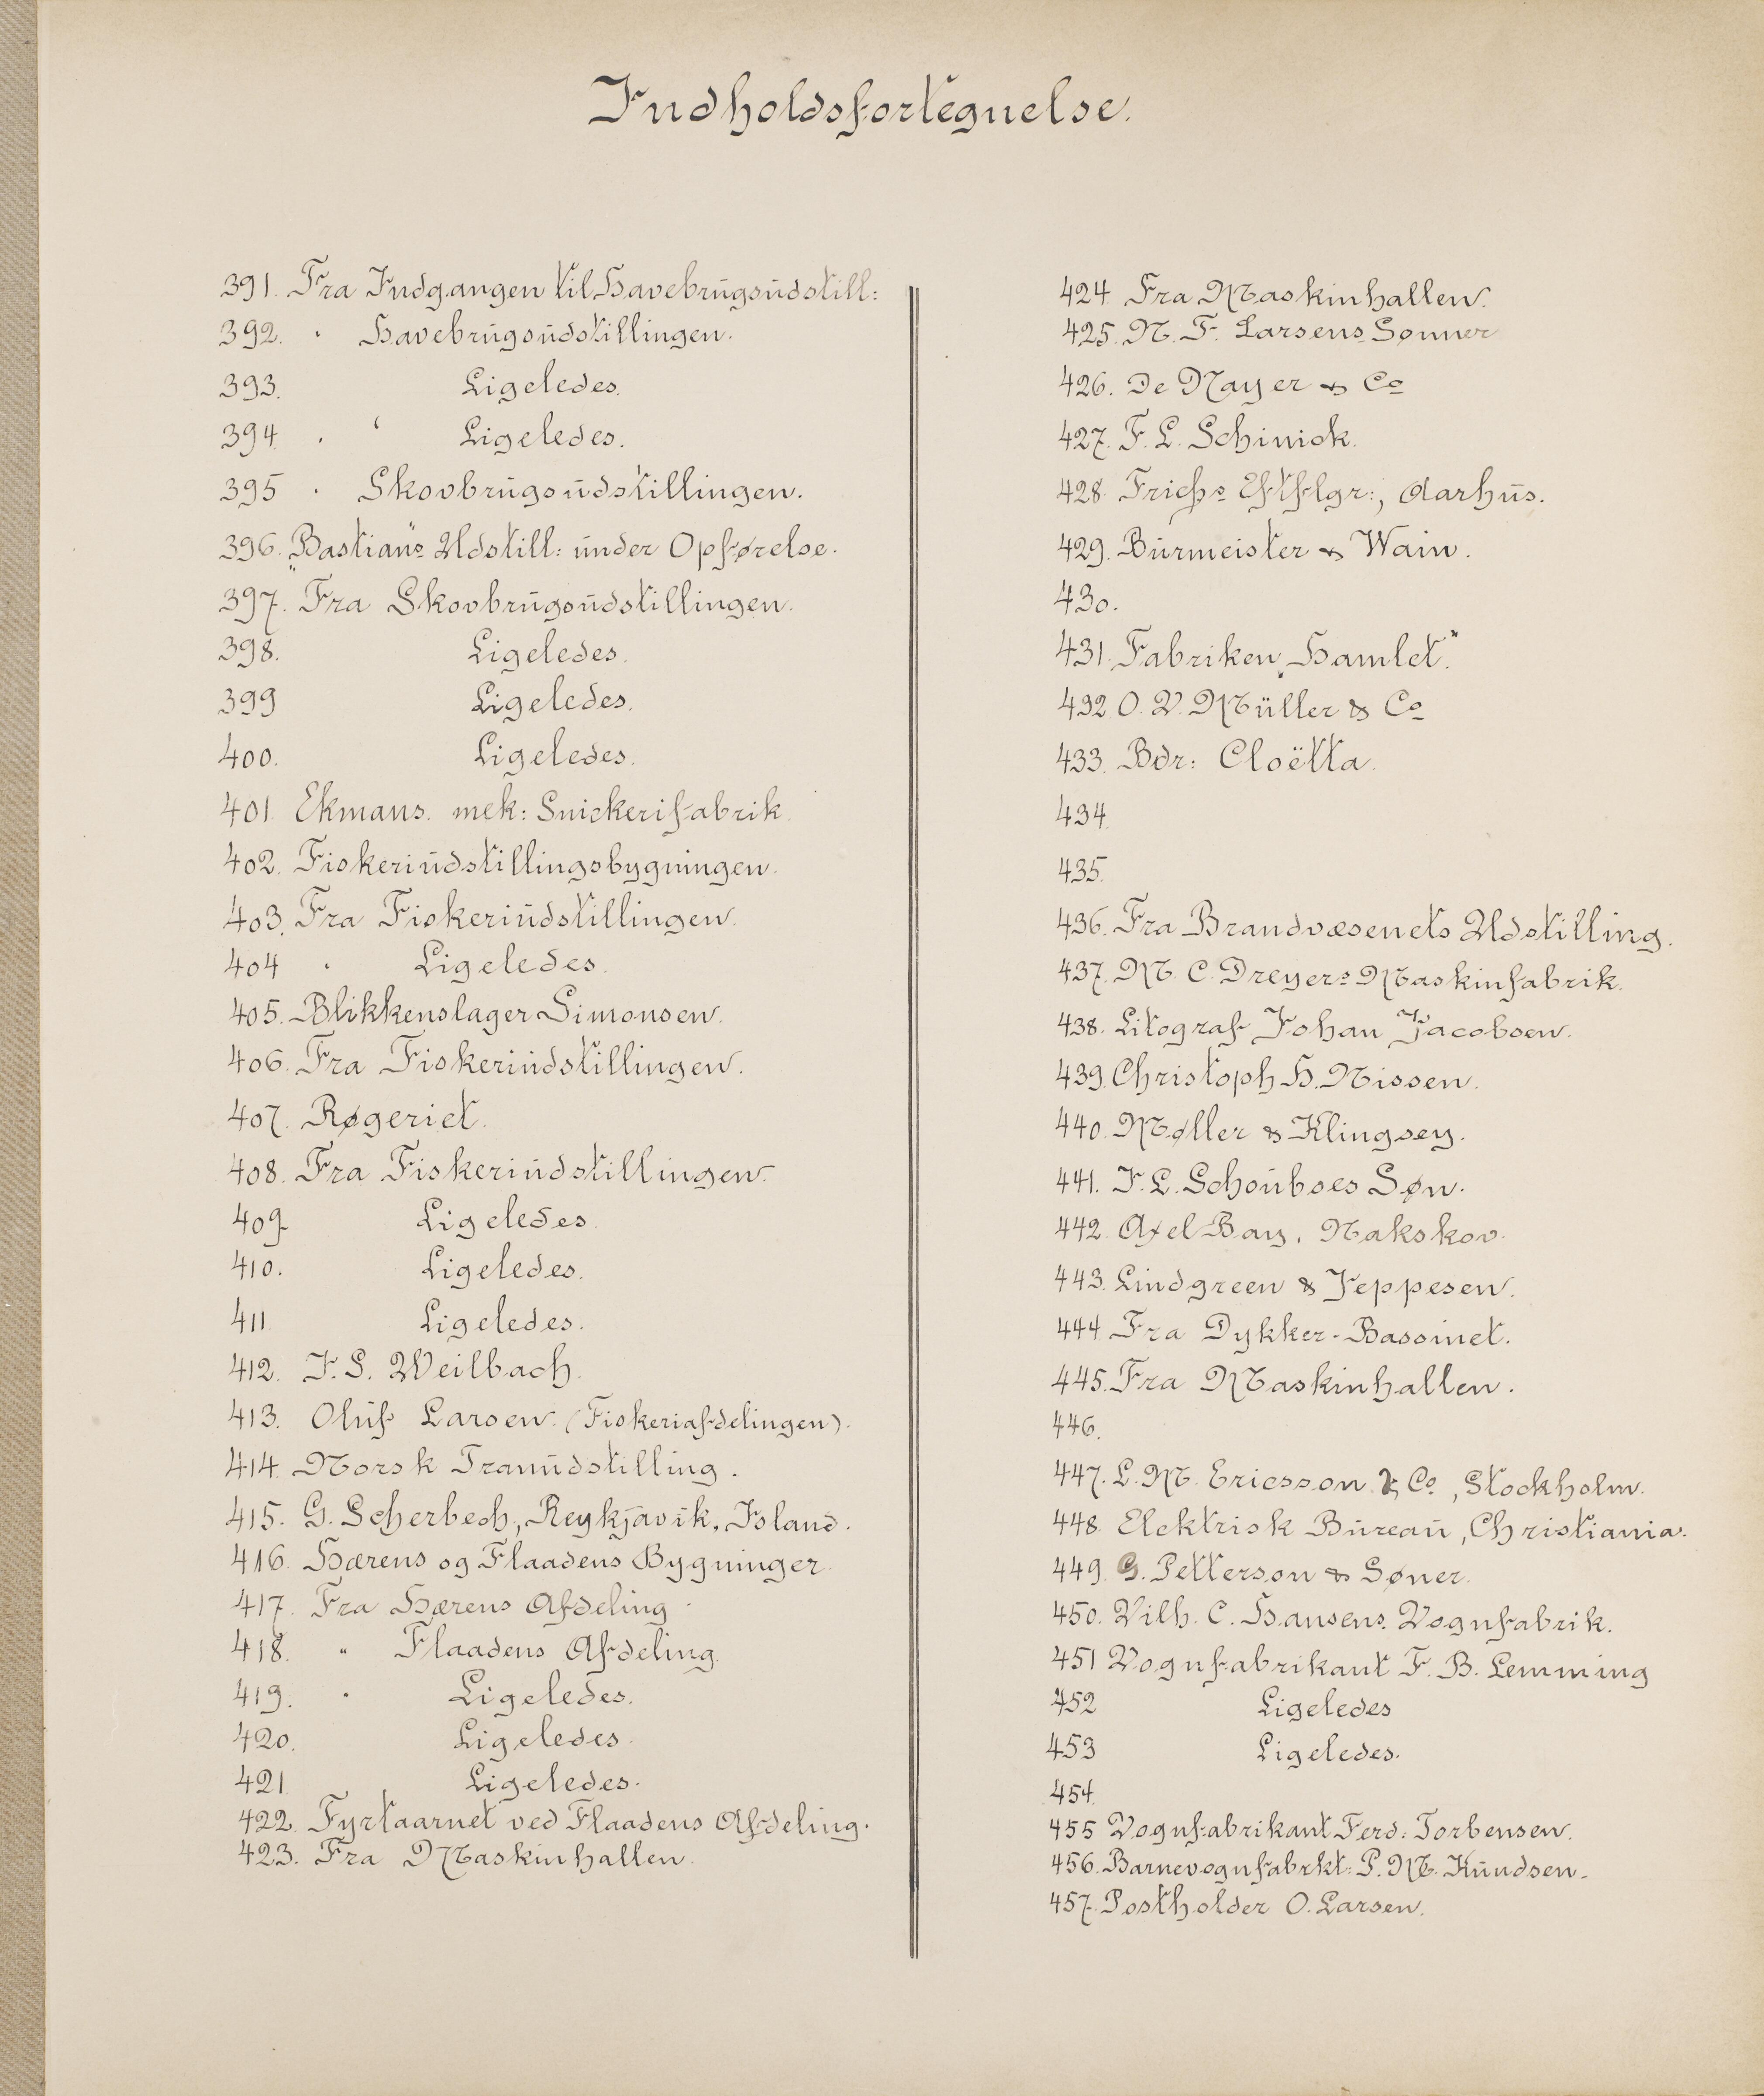 Indholdsfortegnelse.
391. Fra Indgangen til Havebrugsudstill:
392. " Havebrugsudstillingen.
393. Ligeledes.
394. " " Ligeledes.
395 " Skovbrugsudstillingen.
396. „Bastian"s Udstill: under Opførelse.
397. Fra Skovbrugsudstillingen.
398. Ligeledes.
399 Ligeledes.
400. Ligeledes.
401 Ekmans. mek: Snickerifabrik.
402. Fiskeriudstillingsbygningen.
403. Fra Fiskeriudstillingen.
404 " Ligeledes.
405. Blikkenslager Simonsen.
406. Fra Fiskeriudstillingen.
407. Røgeriet.
408. Fra Fiskeriudstillingen.
409 Ligeledes.
410. Ligeledes.
411 Ligeledes.
412. I. S. Weilbach.
413. Oluf Larsen. (Fiskeriafdelingen).
414. Norsk Tranudstilling.
415. G. Scherbech, Reykjavik, Island.
416. Hærens og Flaadens Bygninger.
417. Fra Hærens Afdeling.
418. " Flaadens Afdeling.
419. " Ligeledes.
420. Ligeledes.
421 Ligeledes.
422. Fyrtaarnet ved Flaadens Afdeling.
423. Fra Maskinhallen.
424. Fra Maskinhallen.
425. N. F. Larsens Sønner
426. De Nayer & Co
427. F. L. Schinick.
428. Frichs Eftflgr:, Aarhus.
429. Burmeister & Wain.
430.
431. Fabriken „Hamlet."
432 O. V. Müller & Co
433. Bdr: Cloëtta.
434.
435.
436. Fra Brandvæsenets Udstilling.
437. M. C. Dreyers Maskinfabrik.
438. Litograf Johan Jacobsen.
439. Christoph H. Nissen.
440. Møller & Klingsey.
441. I. L. Schouboes Søn.
442. Axel Bay, Nakskov.
443. Lindgreen & Jeppesen.
444 Fra Dykker-Bassinet.
445. Fra Maskinhallen.
446.
447. L. M. Ericsson & Co, Stockholm.
448. Elektrisk Bureau, Christiania.
449. G. Petterson & Søner.
450. Vilh. C. Hansens Vognfabrik.
451 Vognfabrikant F. B. Lemming
452 Ligeledes
453 Ligeledes.
454.
455 Vognfabrikant Ferd: Torbensen.
456. Barnevognfabrkt: P. M. Knudsen.
457. Postholder O. Larsen.